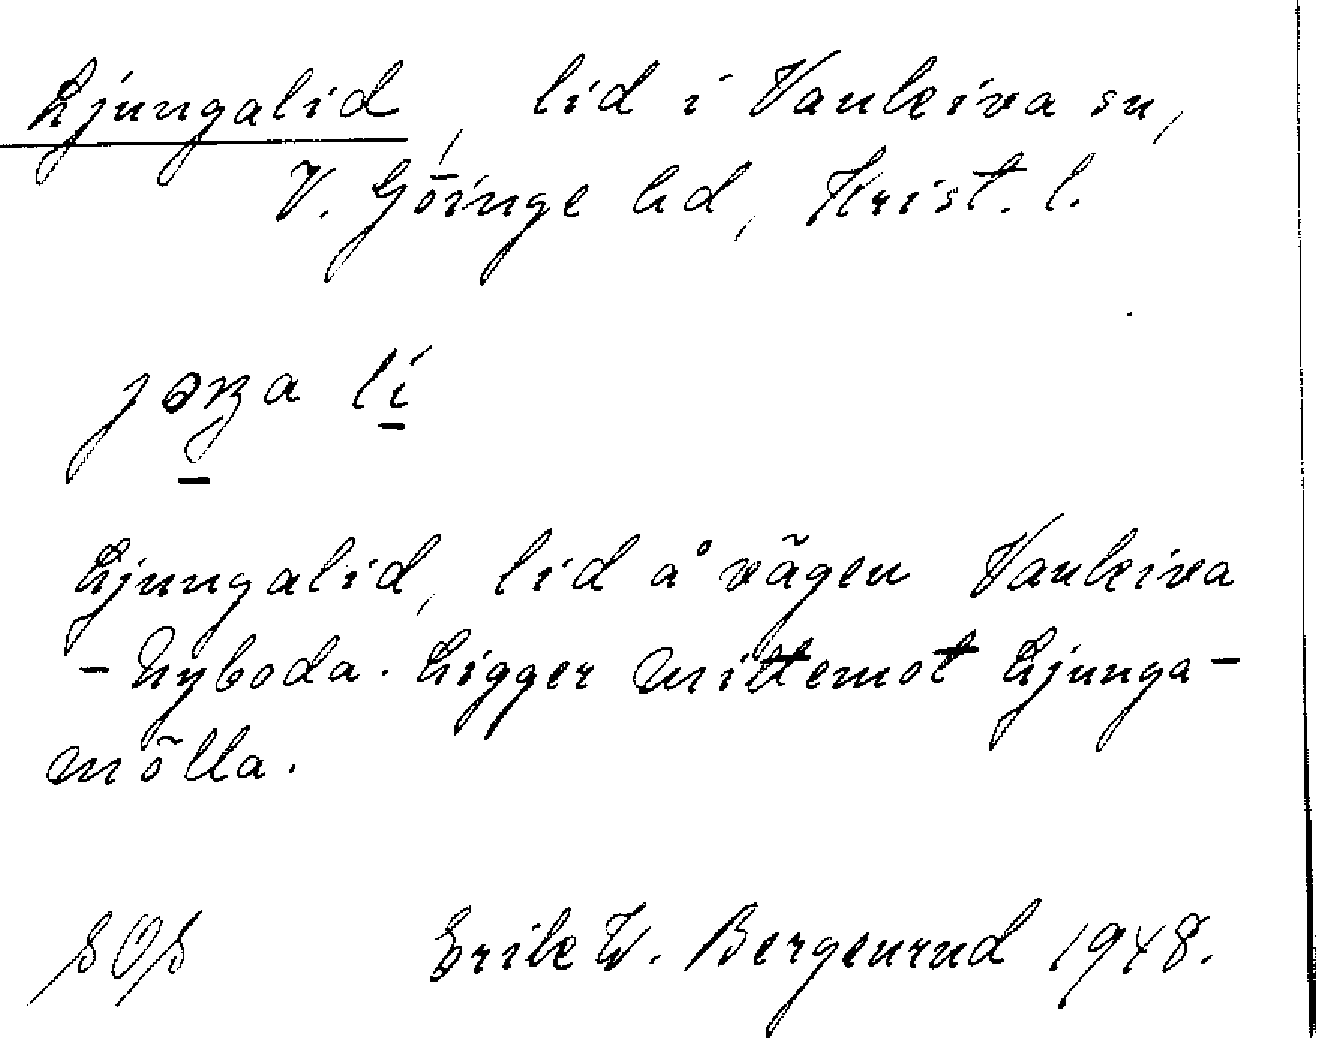 Ljungalid, lid i Vankiva sn,
V. Göinge hd, Krist. l.
Ljungalid, lid å vägen Vankiva
- Nyboda. Ligger mittemot Ljunga-
mölla.
SOS Erik W. Bergenrud 1948.